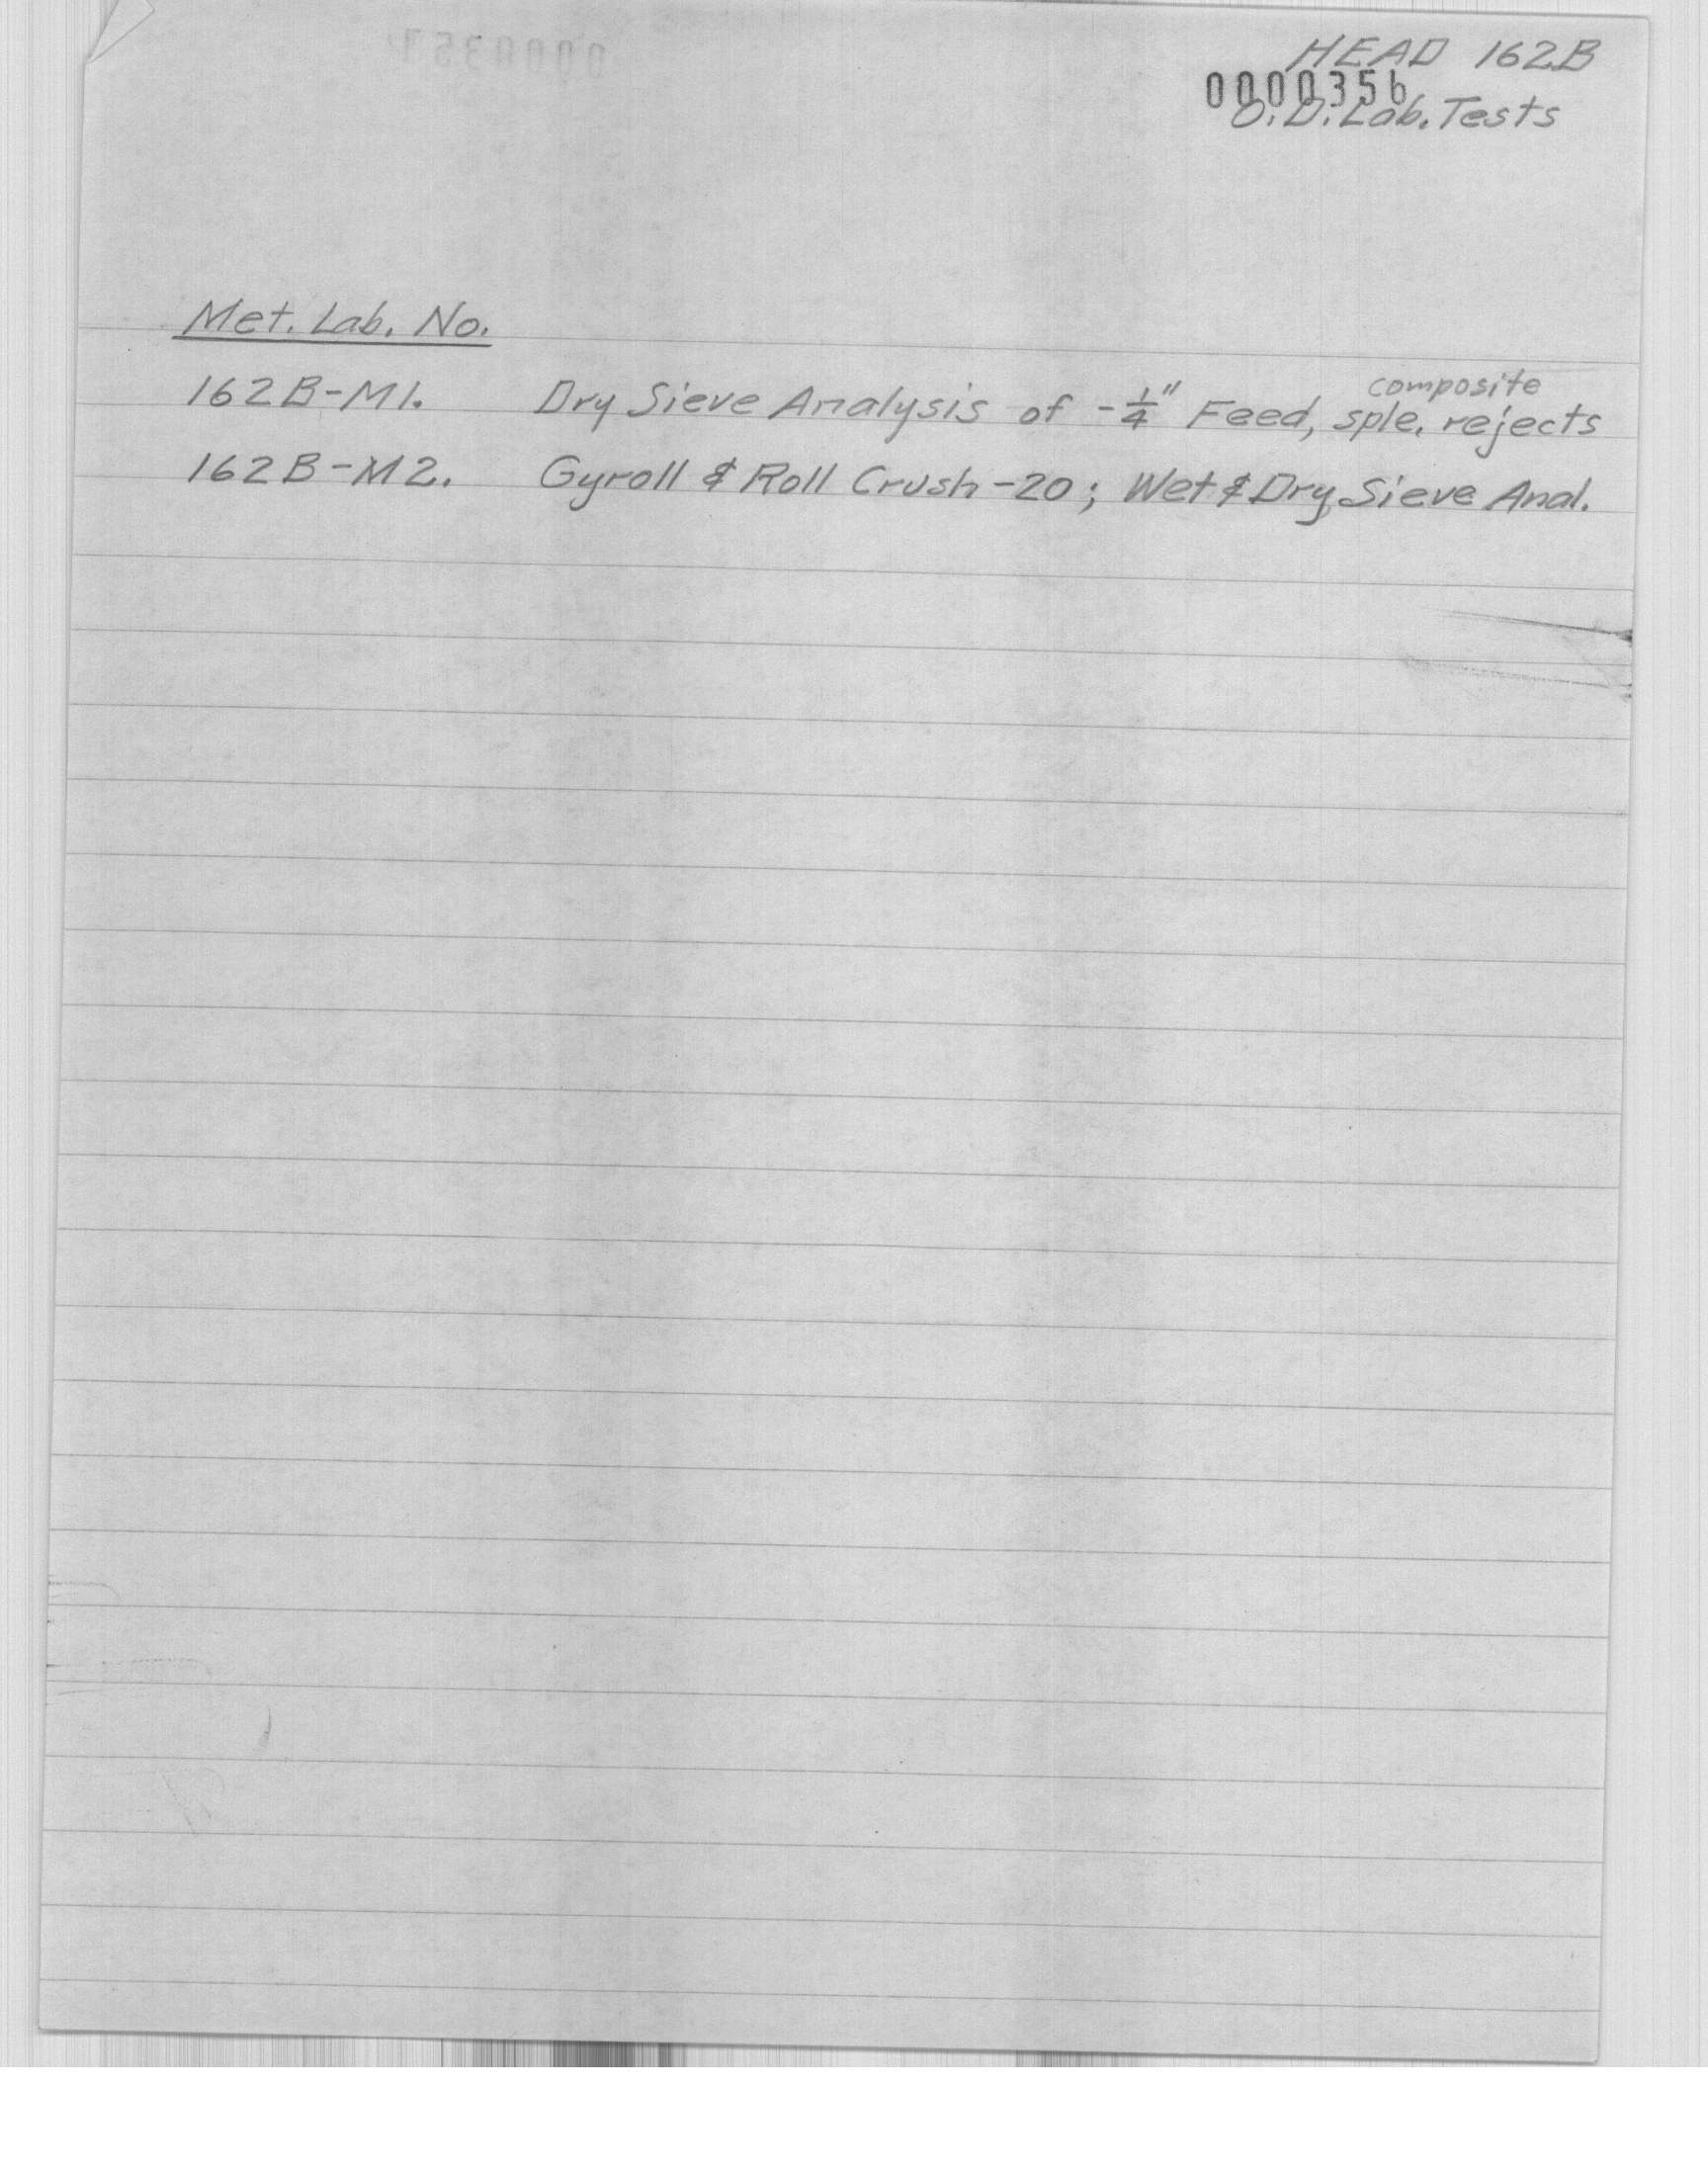 HEAD 162B
0000356
O.D. Lab. Tests
Met. Lab. No.
composite
162B-M1. Dry Sieve Analysis of -1/4" Feed, sple. rejects
162B-M2. Gyroll & Roll Crush -20; Wet & Dry Sieve Anal.